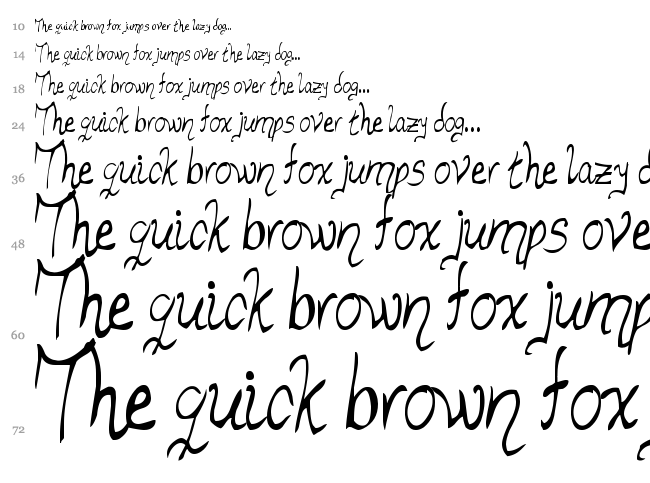 10 The quick brown fox jumps over the lazy dog...
14 The quick brown fox jumps over the lazy dog...
18 The quick brown fox jumps over the lazy dog...
24 The quick brown fox jumps over the lazy dog...
36 The quick brown fox jumps over the lazy d
48 The quick brown fox jumps ove
60 The quick brown fox jump
72 The quick brown fox j